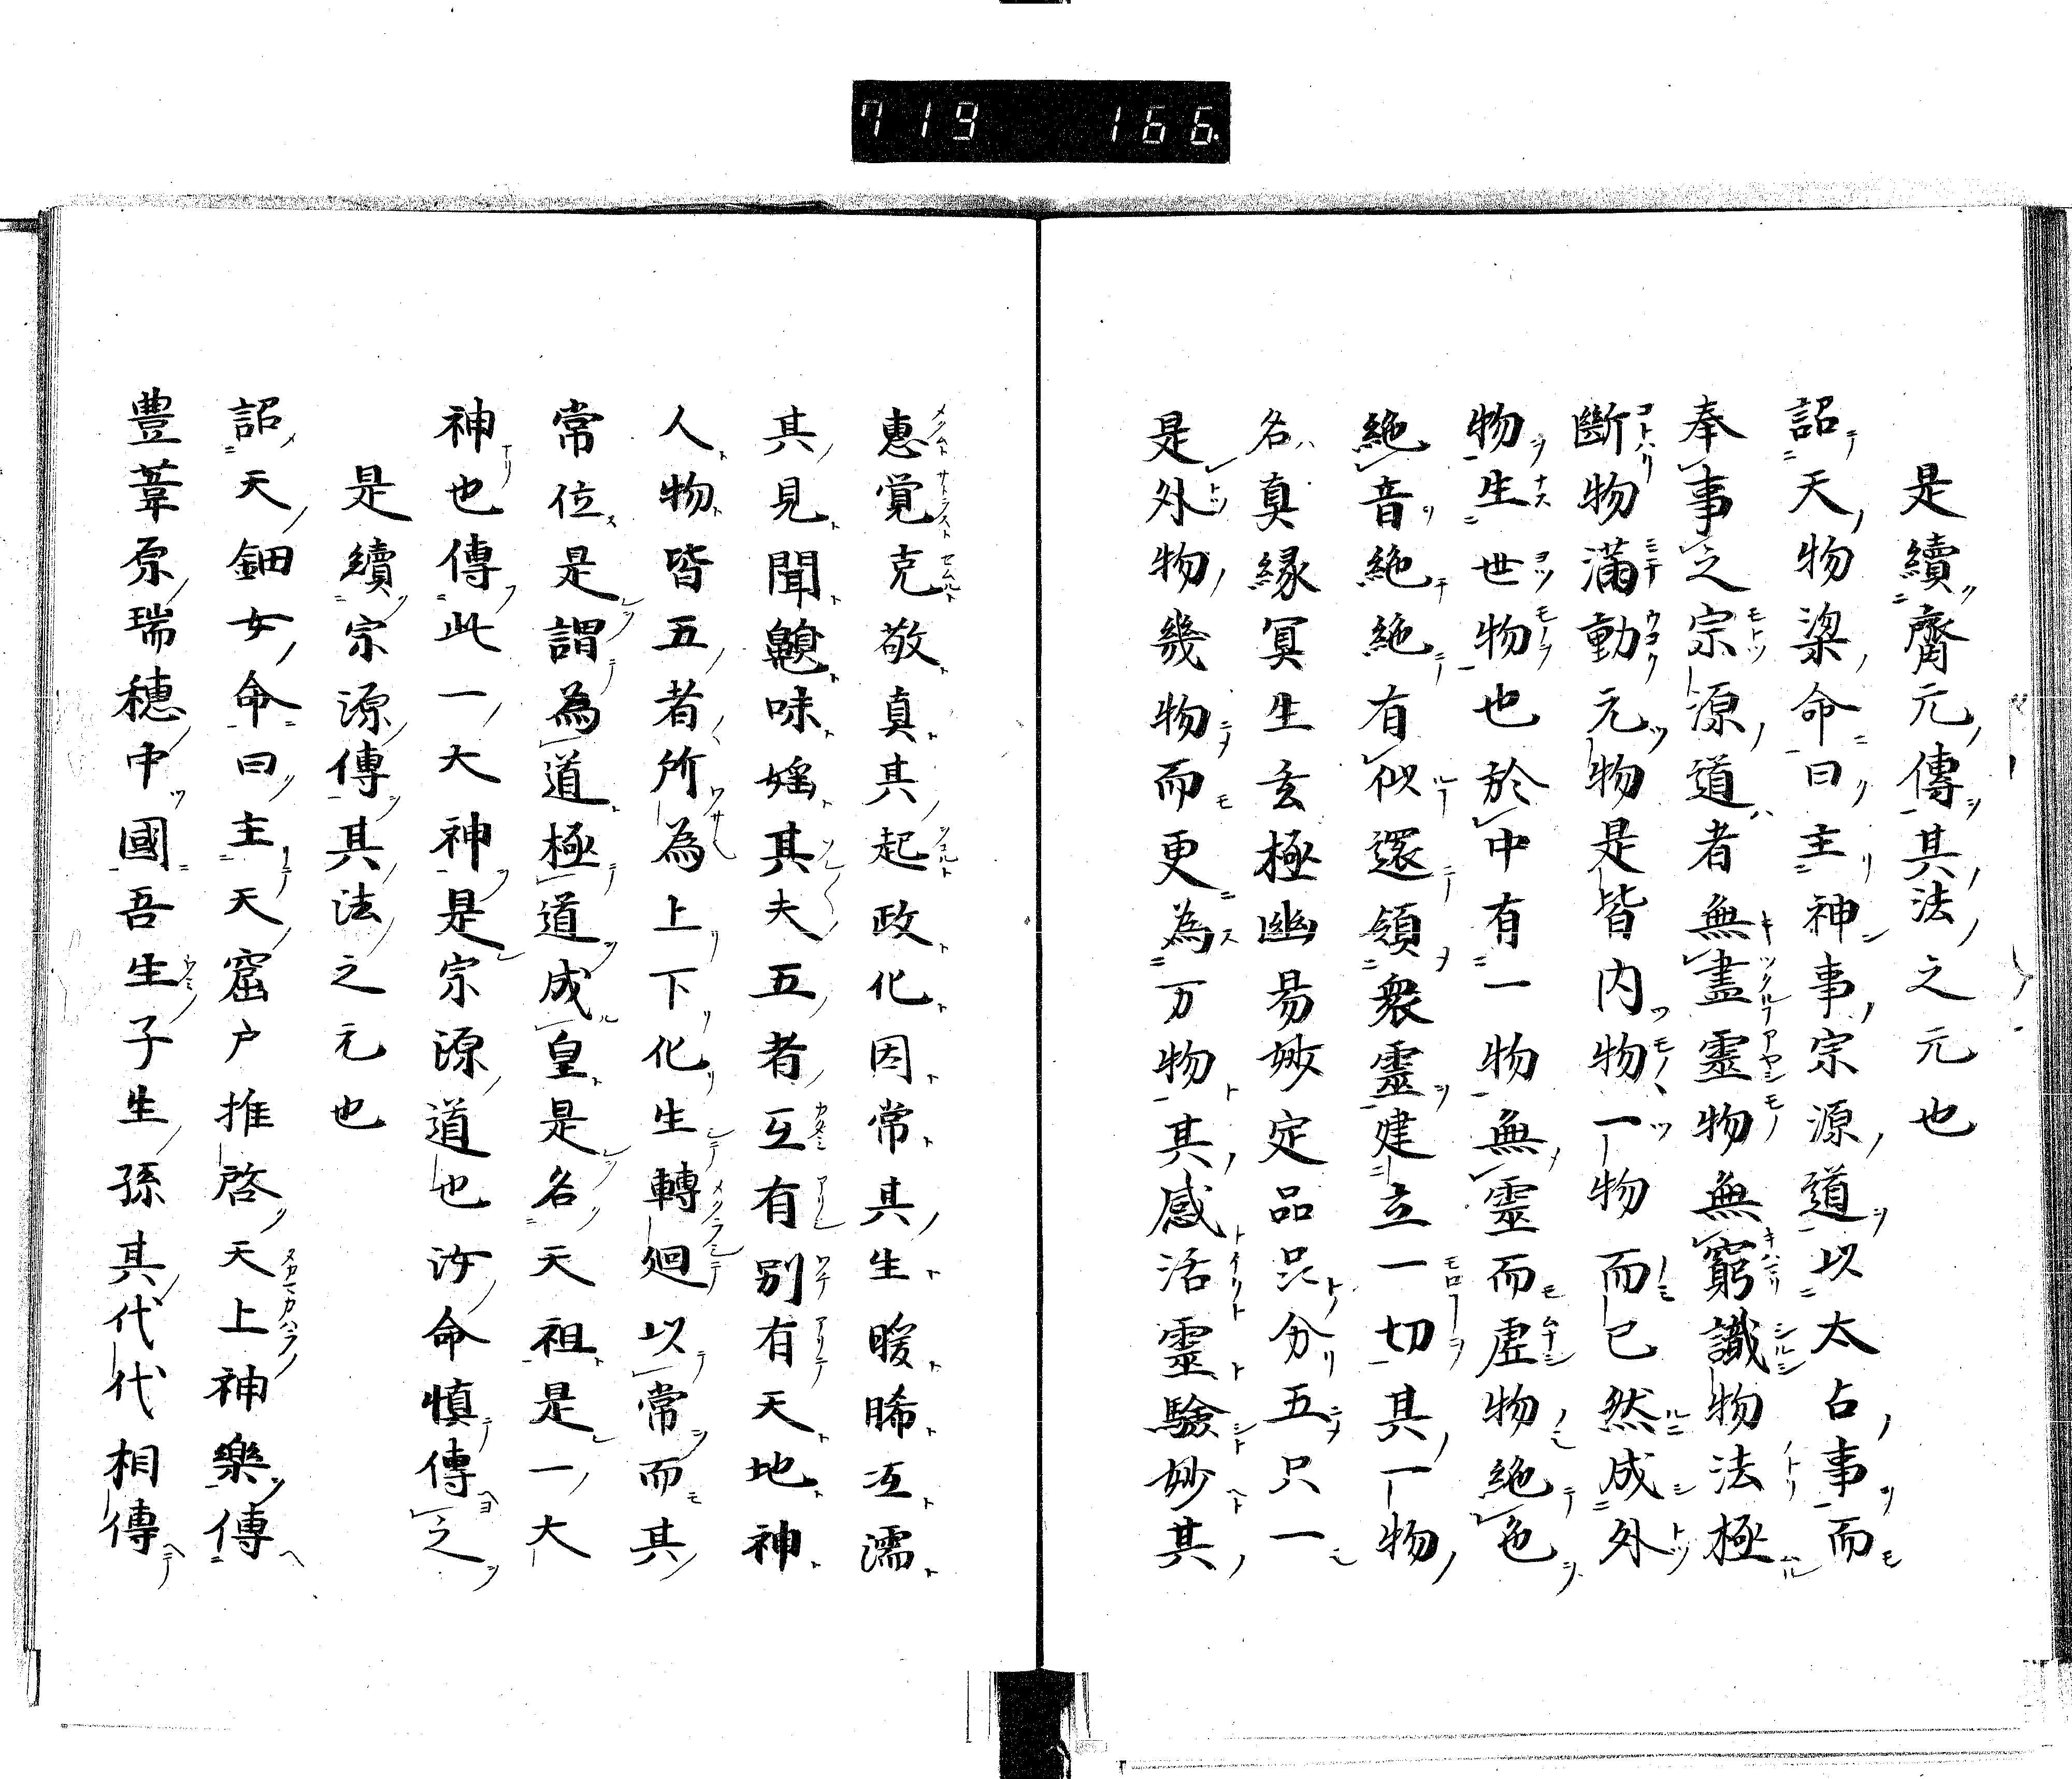 719 166
是續齊元傳其法之元也
詔天物梁命曰主神事宗源道以太占事而
奉事之宗源道者無盡靈物無窮識物法極
斷物滿動元物是皆内物一物而已然成外
物生世物也於中有一物無靈而虛物絶色
絶音絶絶有似還領衆靈建立一切其一物
名真縁冥生玄極幽易妙定品品分五只一
是外物幾物而更為万物其感活靈驗妙其
惠覚克敬真其起政化因常其生暖晞冱濡
其見聞味婬其夫五者互有別有天地神
人物皆五者所為上下化生轉廻以常而其
常位是謂為道極道成皇是名天祖是一大
神也傳此一大神是宗源道也汝命慎傳之
是續宗源傳其法之元也
詔天鈿女命曰主天窟戸推啓天上神樂傳
豊葦原瑞穂中國吾生子生孫其代代相傳